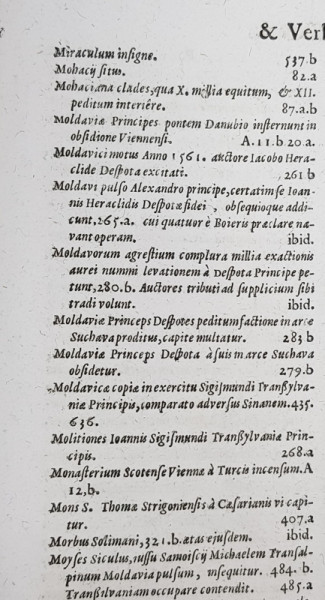 & Ver
Miraculum insigne. 537.b
Mohacij situs. 82.a
Mohaciana clades, qua X. millia equitum, & XII.
peditum interiêre. 87.a.b
Moldaviæ Principes pontem Danubio insternunt in
obsidione Viennensi. A.11.b 20.a.
Moldavici motus Anno 1561. auctore Iacobo Hera-
clide Despota excitati. 261 b
Moldavi pulso Alexandro principe, certatim se Ioan-
nis Heraclidis Despotæ fidei, obsequioque addi-
cunt, 265.a. cui quatuor è Boieris præclare na-
vant operam. ibid.
Moldavorum agrestium complura millia exactionis
aurei nummi levationem à Despota Principe pe-
tunt, 280.b. Auctores tributi ad supplicium sibi
tradi volunt. ibid.
Moldaviæ Princeps Despotes peditum factione in arce
Suchava proditus, capite multatur. 283 b
Moldaviæ Princeps Despota à suis in arce Suchava
obsidetur. 279.b
Moldavicæ copiæ in exercitu Sigismundi Transsylva-
niæ Principis, comparato adversus Sinanem. 435.
636.
Molitiones Ioannis Sigismundi Transsylvaniæ Prin-
cipis. 268.a
Monasterium Scotense Viennæ à Turcis incensum. A
12,b.
Mons S. Thomæ Strigoniensis à Cæsarianis vi capi-
tur. 407.a
Morbus Solimani, 321.b. ætas ejusdem. ibid.
Moyses Siculus, jussu Samoiscij Michaelem Transal-
pinum Moldavia pulsum, insequitur. 484. b.
Transsilvaniam occupare contendit. 485.a